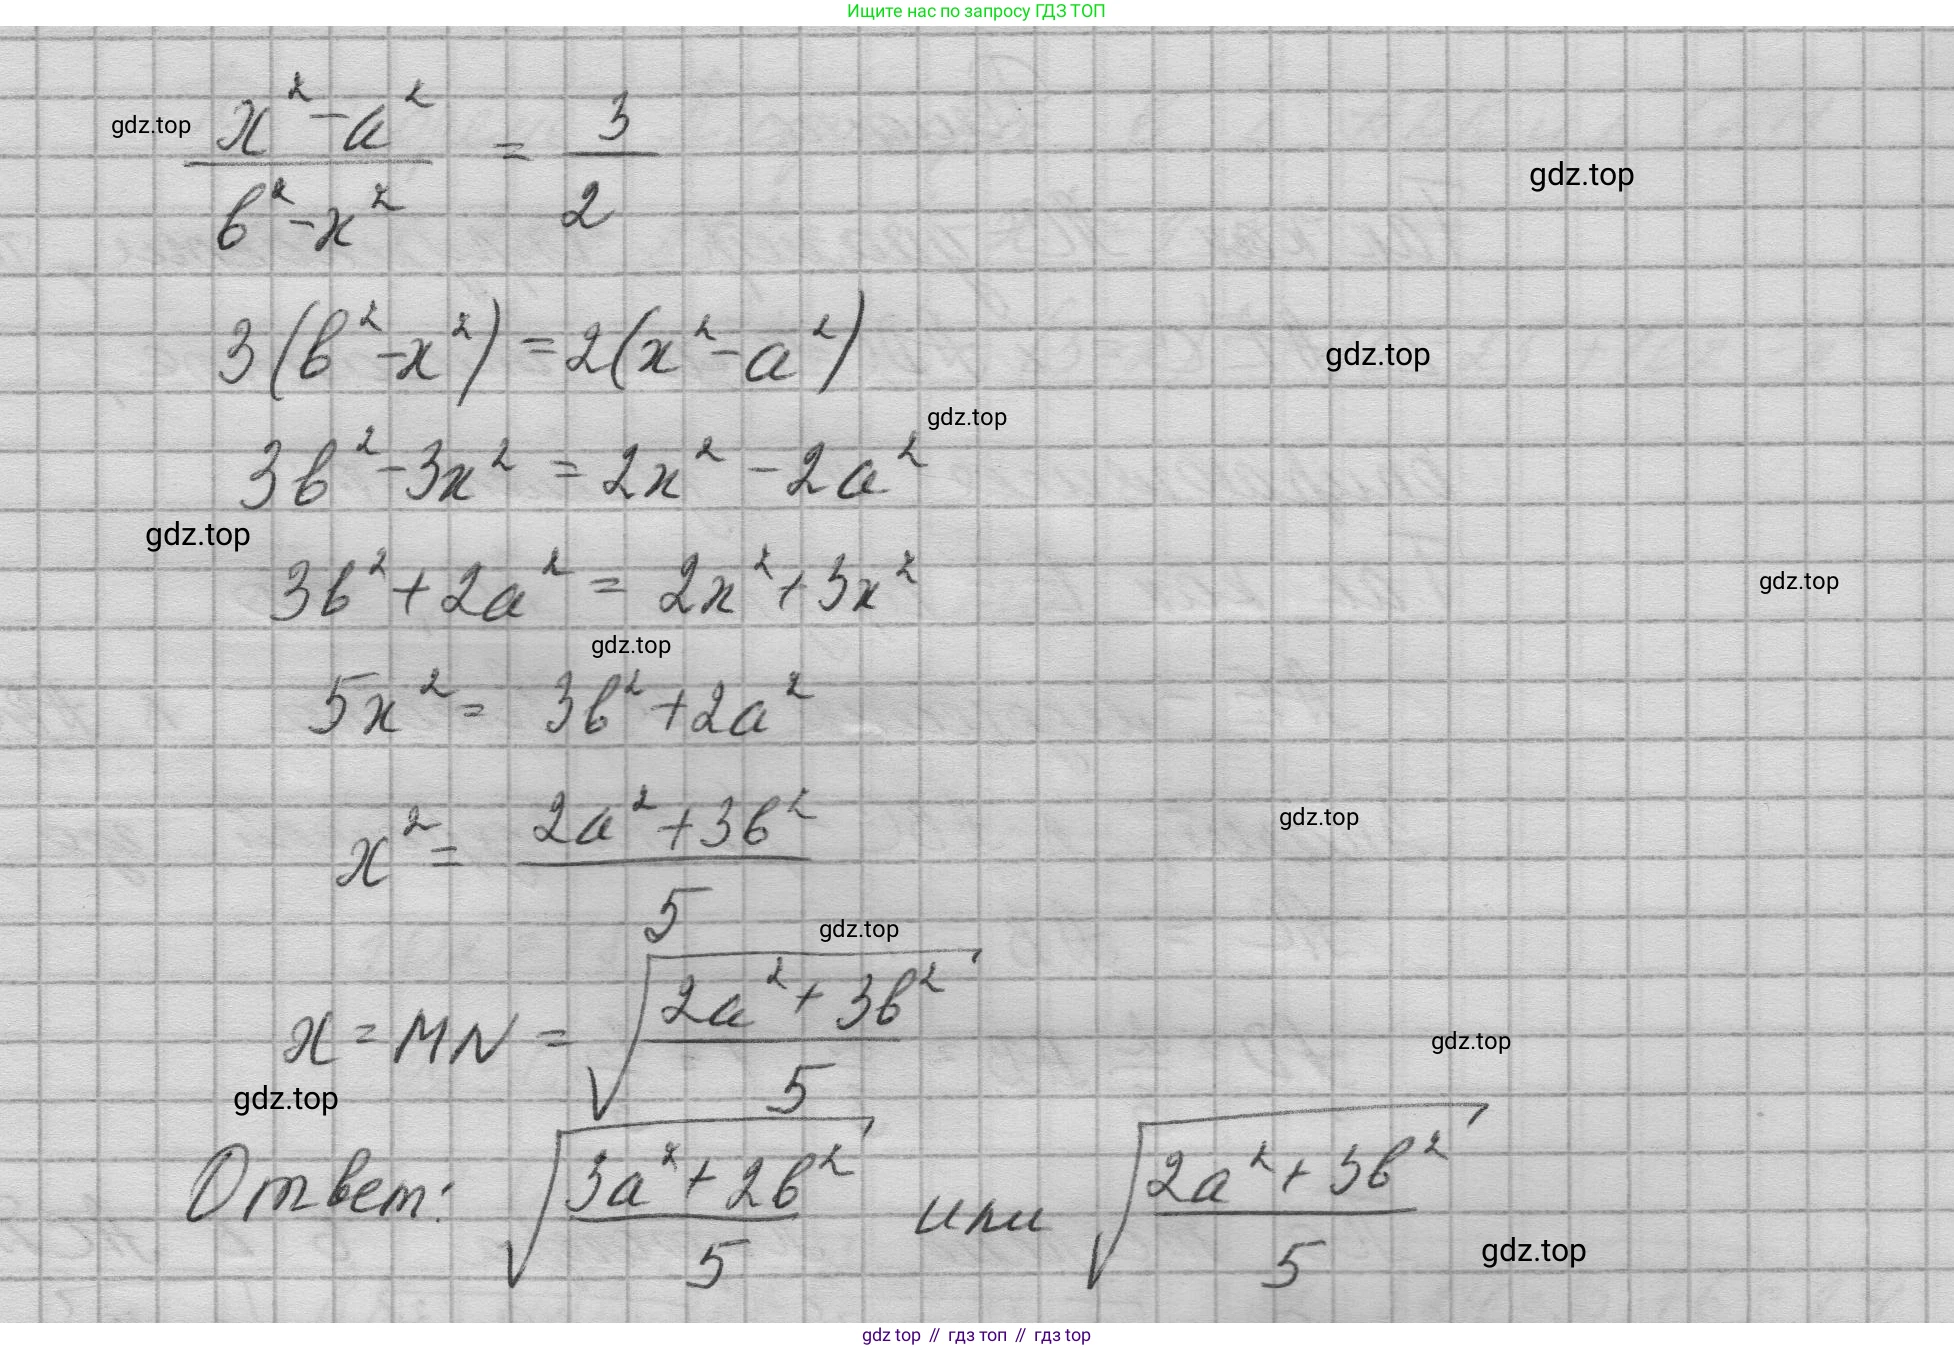 Ищите нас по запросу ГДЗ ТОП
gdz.top
(x² - a²) / (b² - x²) = 3/2
gdz.top
3(b² - x²) = 2(x² - a²)
gdz.top
gdz.top
3b² - 3x² = 2x² - 2a²
gdz.top
3b² + 2a² = 2x² + 3x²
gdz.top
gdz.top
5x² = 3b² + 2a²
x² = (2a² + 3b²) / 5
gdz.top
gdz.top
x = MN = √((2a² + 3b²) / 5)
gdz.top
gdz.top
Ответ: √((3a² + 2b²) / 5) или √((2a² + 3b²) / 5)
gdz.top
gdz top // гдз топ // гдз top